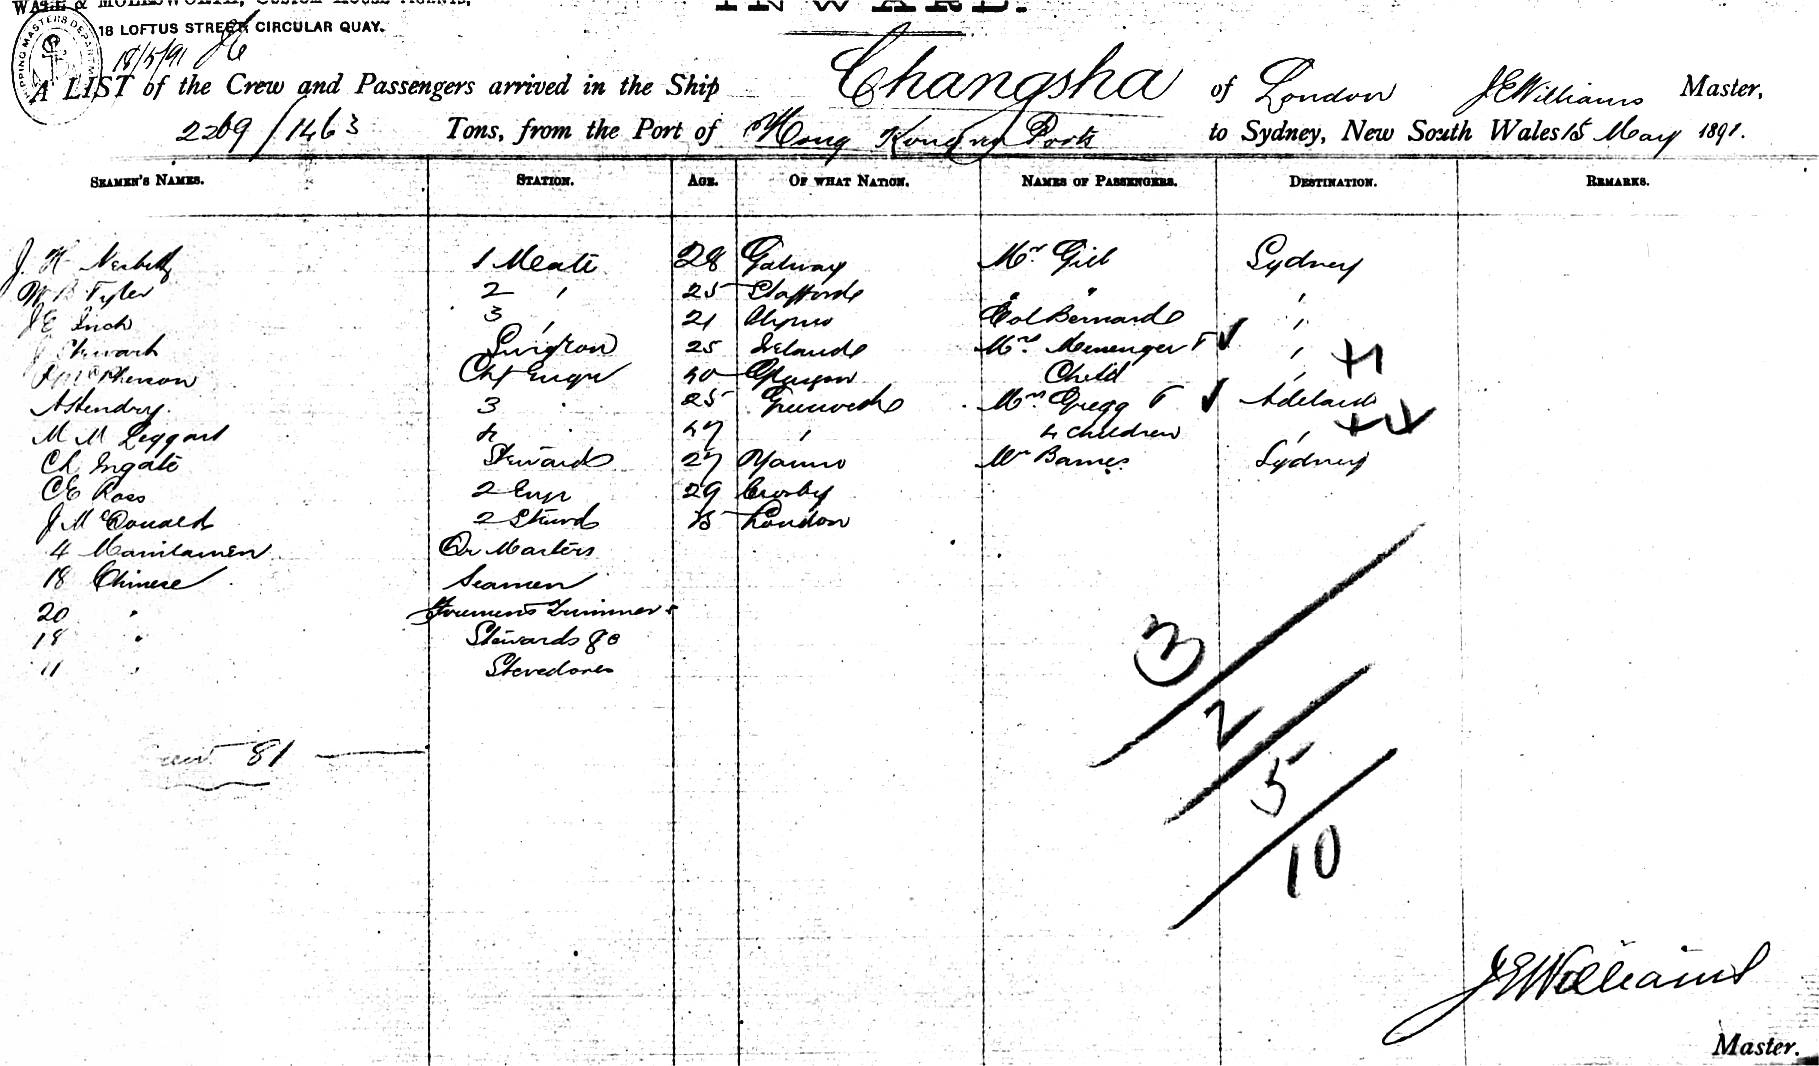 18 LOFTUS STREET, CIRCULAR QUAY.
18/5/91
A LIST of the Crew and Passengers arrived in the Ship Changsha of London J E Williams Master,
2269/1463 Tons, from the Port of Hong Kong Ports to Sydney, New South Wales 15 May 1891.
SEAMEN'S NAMES. STATION. AGE. OF WHAT NATION. NAMES OF PASSENGERS. DESTINATION. REMARKS.
J. H 1 Mate 28 Galway Mr Gill Sydney
W B Tyler 2 " 25 " "
J E Inch 3 " 21 Col Bernard "
J Stewart 25 Ireland Mrs F "
McPherson Chf Engr 40 Glasgow Child " +1
A Hendry. 3 " 25 Greenock Mrs Gregg F Adelaide
M M Leggart 4 " 47 " 4 children "
Ch Ingate Steward 27 Mr Barnes Sydney
C E Ross 2 Engr 29 Crosby
J McDonald 2 Stewd London
4 Manilamen Qr Masters
18 Chinese Seamen
20 " Firemen & Trimmers
18 " Stewards &c
11 " Stevedores
3
2
Crew 81
5
10
J E Williams
Master.